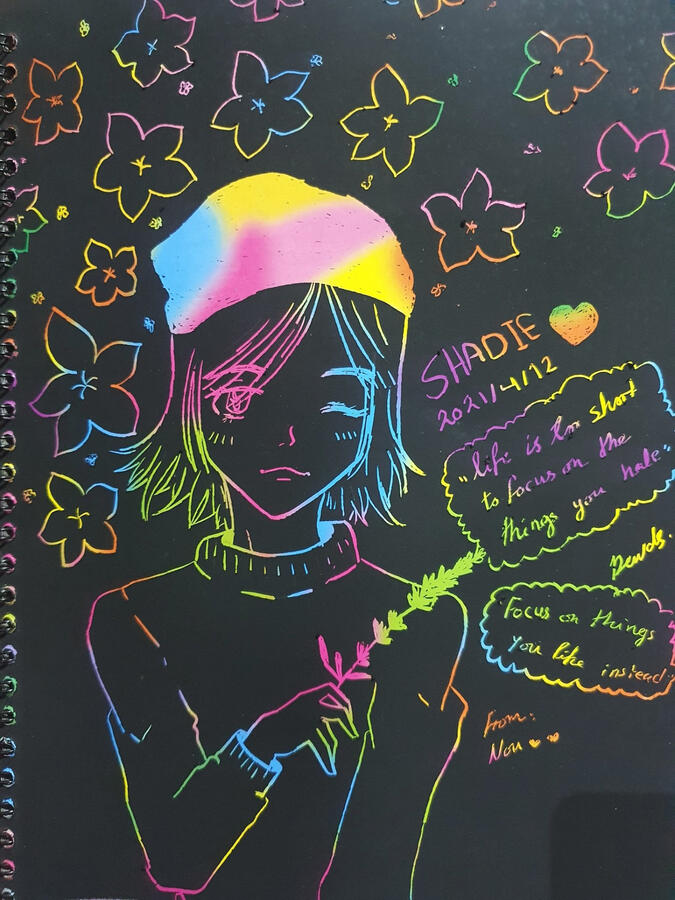 SHADIE
2021/4/12
"life is too short
to focus on the
things you hate"
Focus on things
you like instead
From:
Nou